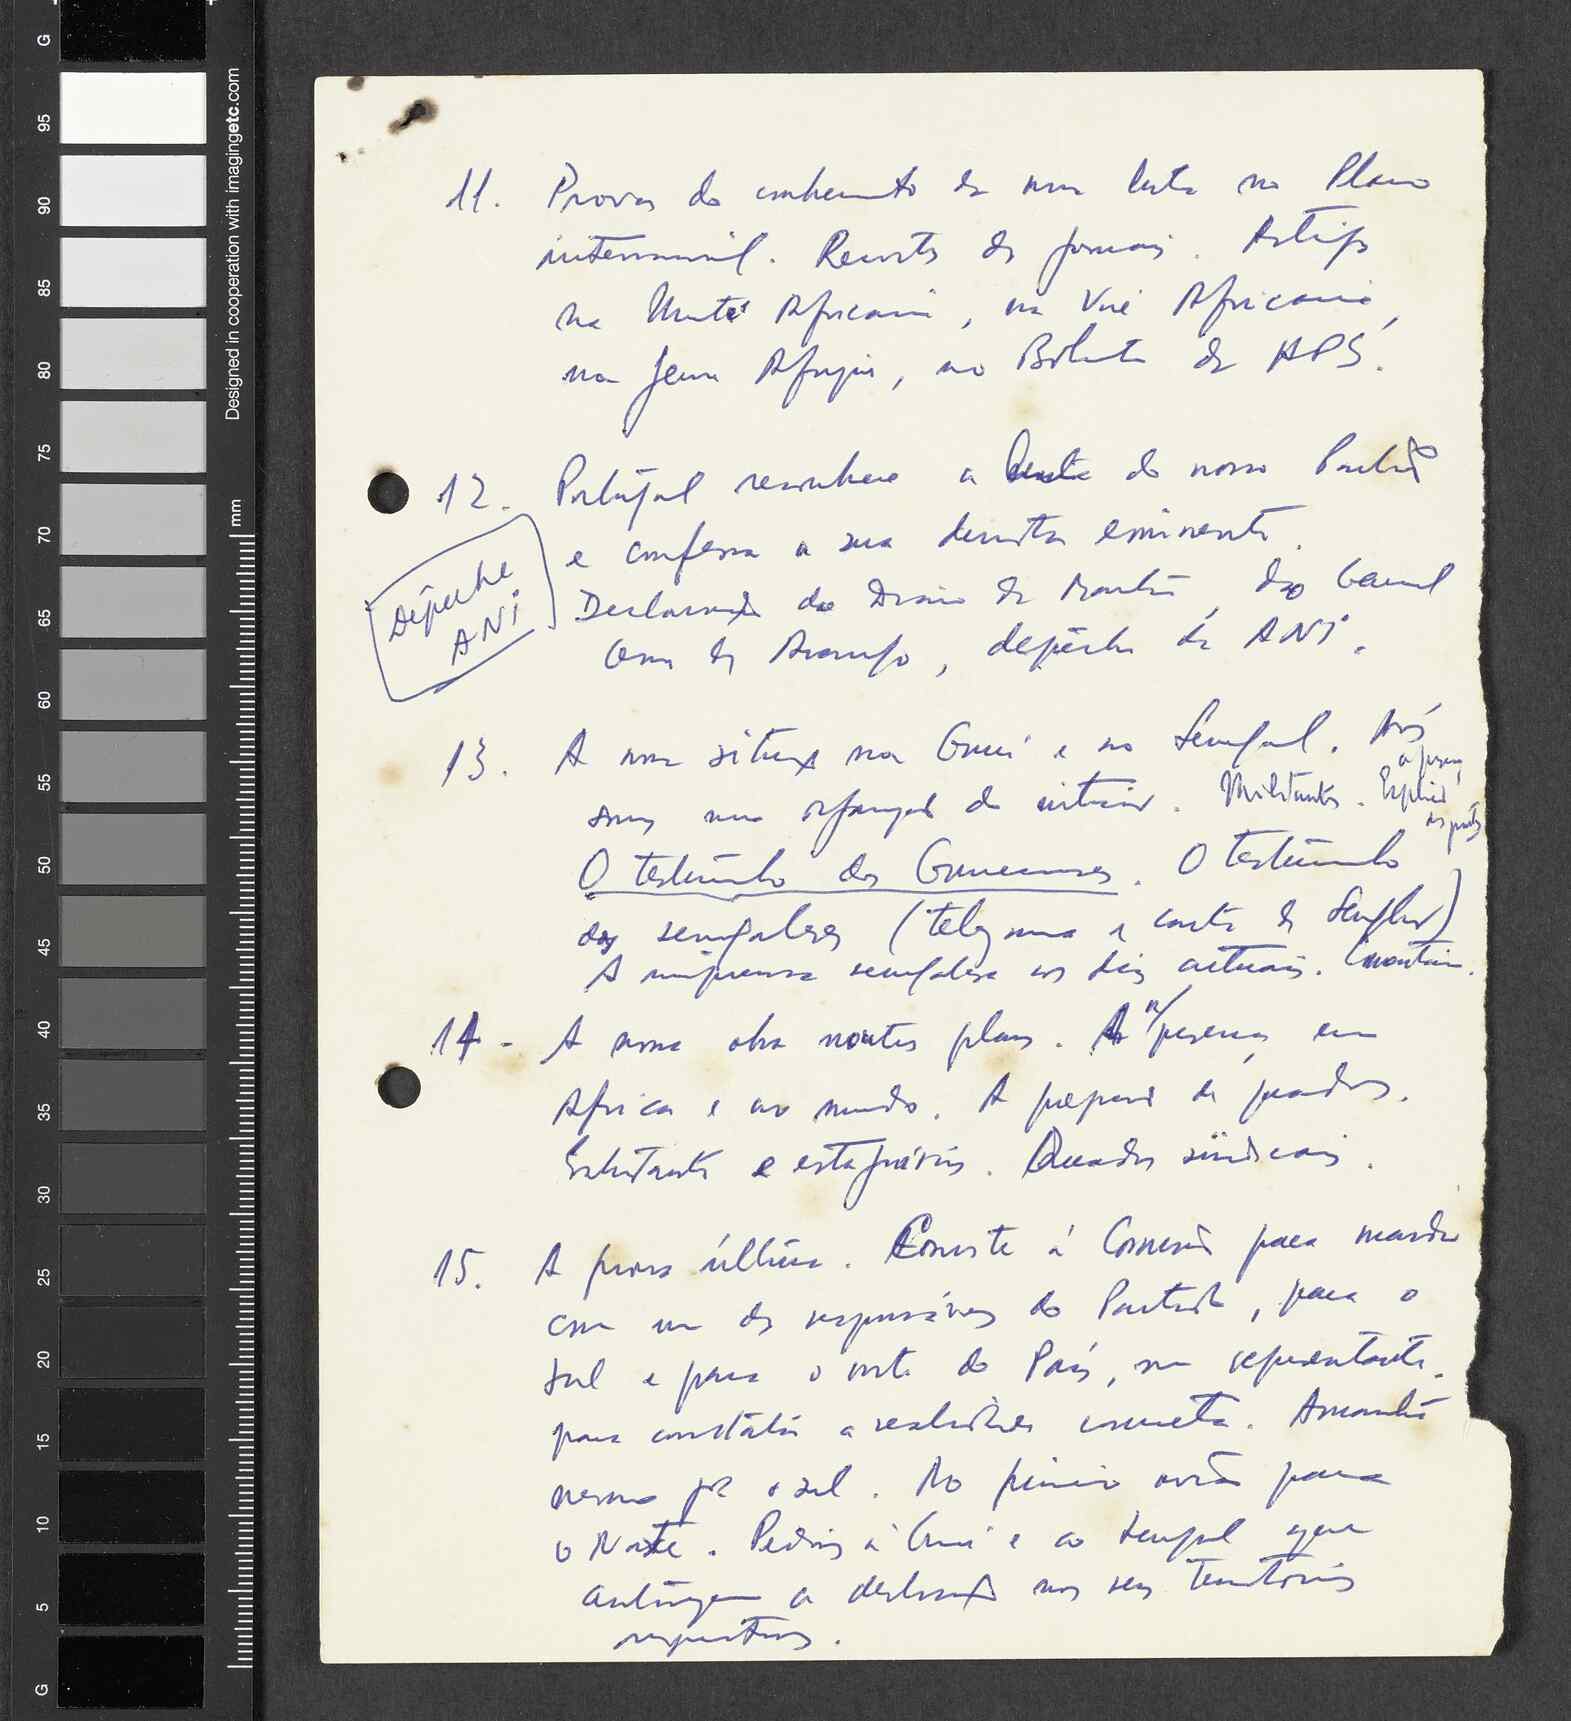 G
95
90
85
80
75
70
65
60
55
50
45
40
35
30
25
20
15
10
5
G
Designed in cooperation with imagingetc.com
mm
11. Provas do conhecimento da nossa luta no Plano
internacional. Recorts de jornais. Artigos
na Unité Africaine, na Voie Africaine,
na Jeune Afrique, no Boletim da APS.
12. Portugal reconhece a luta do nosso Partido
e confessa a sua derrota eminente.
Declaração do Diario da Manhã, do
de Araujo, depêche da ANI.
Dépeche
ANI
13. A nossa situação na Guiné e no Senegal. Nós
somos uma organização do interior. Militantes.
O testemunho dos Guineenses. O testemunho
dos senegaleses (telegrama e carta de Senghor)
A imprensa senegalesa nos dias actuais.
14 - A nossa obra noutros planos. A n/ presença em
Africa e no mundo. A preparação de quadros.
Estudantes e estagiários. Quadros sindicais.
15. A prova última. Convite à Comissão para mandar
com um dos responsáveis do Partido, para o
sul e para o norte do País, um representante,
para constatar a realidade concreta. Amanhã
mesmo para o sul. No primeiro avião para
o Norte. Pedimos à Guiné e ao Senegal que
autorizem a deslocação nos seus territórios
respectivos.